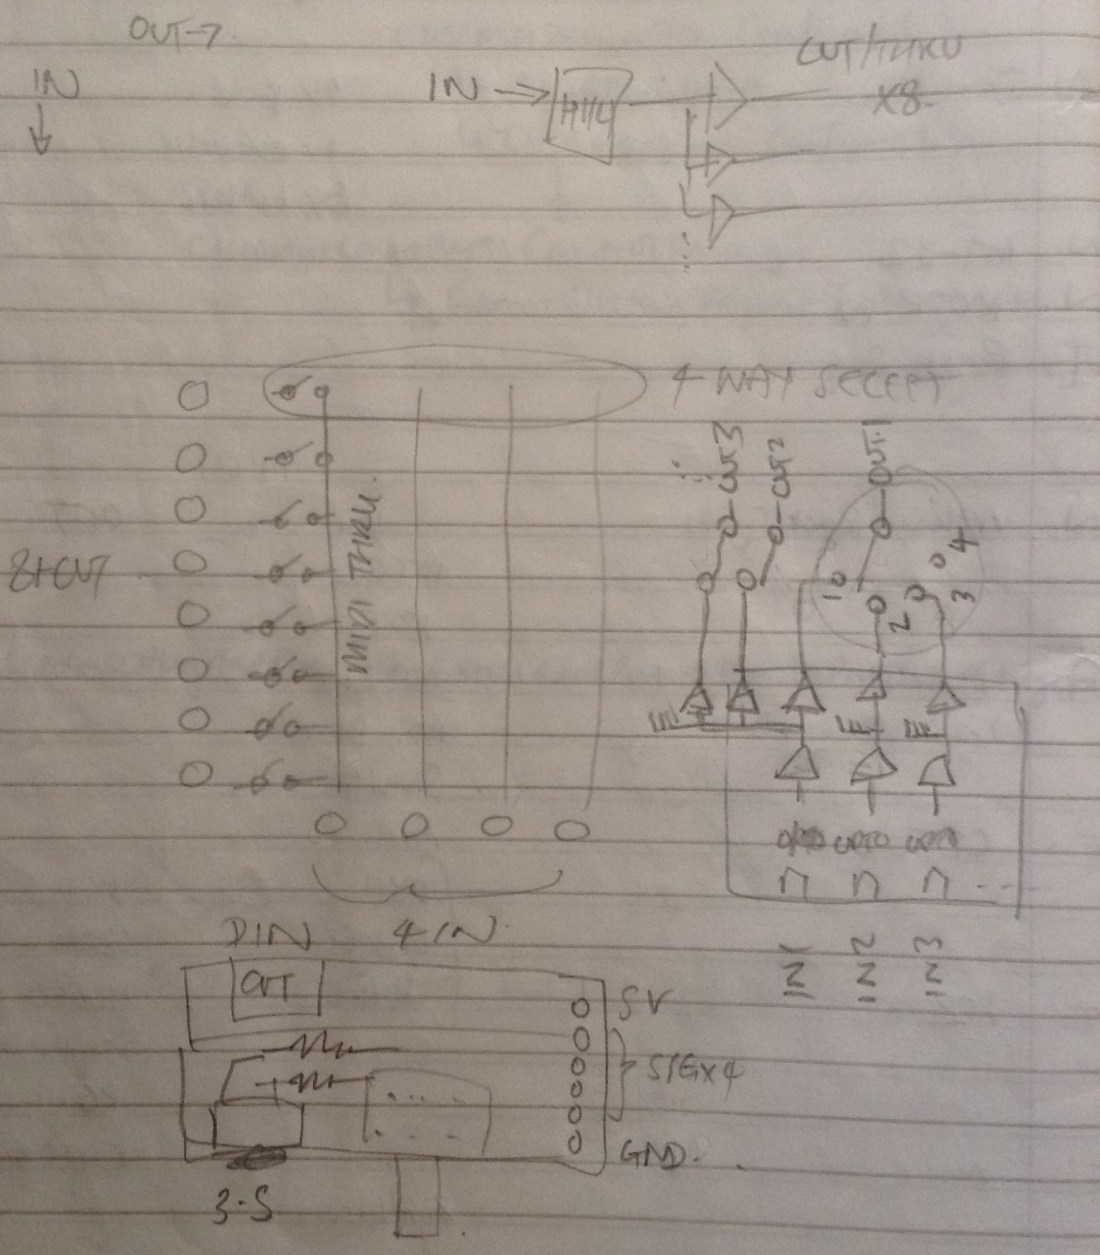 OUT→
OUT/THRU
IN
IN →
H11L
X8
4 WAY SELECT
OUT3
OUT2
OUT1
8+OUT
MIDI THRU.
1
2
3
4
OPTO OPTO
DIN
4 IN.
IN1
IN2
IN3
OUT
5V
SIGX4
GND.
3.5